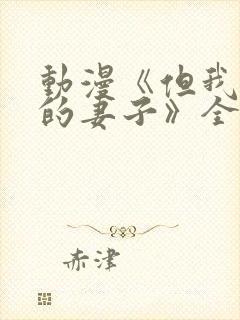 動漫《但我
的妻子》全
赤津